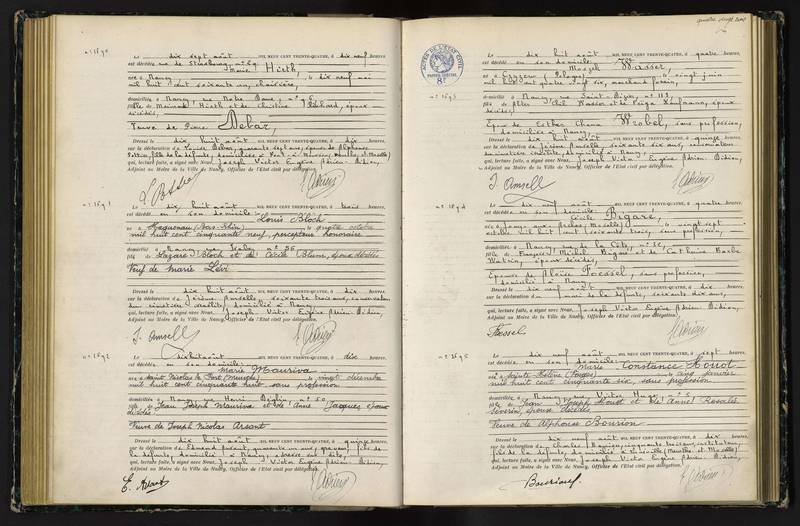 n° 1690
Le dix sept août MIL NEUF CENT TRENTE-QUATRE, à dix neuf heures,
est décédée rue de Strasbourg, n° 69
Marie Hirth
née à Nancy le dix neuf mai
mil huit cent soixante un, chaisière,
domiciliée à Nancy, rue Notre Dame, n° 96
fille de Hirth et de Christine époux
décédés,
Veuve de Pierre Debar,
Dressé le dix huit août MIL NEUF CENT TRENTE-QUATRE, à dix heures,
sur la déclaration de Louise Debar, quarante sept ans, épouse de Alphonse
fille de la défunte, domiciliée à Pont-à-Mousson (Meurthe et Moselle)
qui, lecture faite, a signé avec Nous, Joseph Victor Eugène Adrien Bidien,
Adjoint au Maire de la Ville de Nancy, Officier de l'Etat civil par délégation.
n° 1691
Le dix huit août MIL NEUF CENT TRENTE-QUATRE, à trois heures,
est décédé en son domicile
Louis Bloch
né à Haguenau (Bas-Rhin) le quatre octobre
mil huit cent cinquante neuf, percepteur honoraire
domicilié à Nancy, rue n° 36
fils de Lazare Bloch et de Cécile Blum, époux décédés
Veuf de Marie Lévi
Dressé le dix huit août MIL NEUF CENT TRENTE-QUATRE, à dix heures,
sur la déclaration de Jérôme Amsell, soixante trois ans, conservateur
du cimetière israélite, domicilié à Nancy,
qui, lecture faite, a signé avec Nous, Joseph Victor Eugène Adrien Bidien,
Adjoint au Maire de la Ville de Nancy, Officier de l'Etat civil par délégation.
J. Amsell
n° 1692
Le dix huit août MIL NEUF CENT TRENTE-QUATRE, à dix heures,
est décédée en son domicile
Marie Mauriva
née à Saint Nicolas de Port (Meurthe) le vingt décembre
mil huit cent cinquante huit, sans profession
domiciliée à Nancy, rue Henri n° 50
fille de Jean Joseph Mauriva et de Anne Jacques époux
décédés
Veuve de Joseph Nicolas Arsant
Dressé le dix huit août MIL NEUF CENT TRENTE-QUATRE, à quinze heures,
sur la déclaration de Edmond Arsant, quarante un ans, fils de
la défunte, domicilié à Nancy,
qui, lecture faite, a signé avec Nous, Joseph Victor Eugène Adrien Bidien,
Adjoint au Maire de la Ville de Nancy, Officier de l'Etat civil par délégation.
E. Arsant
n° 1693
Le dix huit août MIL NEUF CENT TRENTE-QUATRE, à quatre heures,
est décédé en son domicile
Moszek Wasser
né à (Pologne) le vingt juin
mil huit cent quatre vingt six, marchand forain,
domicilié à Nancy, rue Saint-Dizier, n° 113,
fils de Wasser et de époux
décédés,
Epoux de Esther Chana Wrobel, sans profession,
domiciliée à Nancy,
Dressé le dix huit août MIL NEUF CENT TRENTE-QUATRE, à quinze heures,
sur la déclaration de Jérôme Amsell, soixante six ans, conservateur
du cimetière israélite, domicilié à Nancy,
qui, lecture faite, a signé avec Nous, Joseph Victor Eugène Adrien Bidien,
Adjoint au Maire de la Ville de Nancy, Officier de l'Etat civil par délégation.
J. Amsell
n° 1694
Le dix neuf août MIL NEUF CENT TRENTE-QUATRE, à quatre heures,
est décédée en son domicile
Cécile Bigare,
née à Jouy aux Arches (Moselle) le vingt sept
mil huit cent soixante trois, sans profession,
domiciliée à Nancy, rue de la Côte, n° 32,
fille de François Michel Bigare et de Catherine Barbe
époux décédés,
Epouse de Aloïse Foessel, sans profession,
domicilié à Nancy
Dressé le dix neuf août MIL NEUF CENT TRENTE-QUATRE, à heures,
sur la déclaration du mari de la défunte, soixante dix ans,
qui, lecture faite, a signé avec Nous, Joseph Victor Eugène Adrien Bidien,
Adjoint au Maire de la Ville de Nancy, Officier de l'Etat civil par délégation.
Foessel
n° 1695
Le dix neuf août MIL NEUF CENT TRENTE-QUATRE, à sept heures,
est décédée en son domicile
Marie Constance Houot
née à Sainte Hélène (Vosges) le cinq janvier
mil huit cent cinquante six, sans profession
domiciliée à Nancy, rue Victor Hugo, n° 5
fille de Jean Joseph Houot et de Anne Rosalie
Séverin, époux décédés
Veuve de Alphonse Bourion
Dressé le dix neuf août MIL NEUF CENT TRENTE-QUATRE, à dix heures,
sur la déclaration de Charles Bourion, cinquante trois ans, instituteur,
fils de la défunte, domicilié à (Meurthe et Moselle)
qui, lecture faite, a signé avec Nous, Joseph Victor Eugène Adrien Bidien,
Adjoint au Maire de la Ville de Nancy, Officier de l'Etat civil par délégation.
Bourion